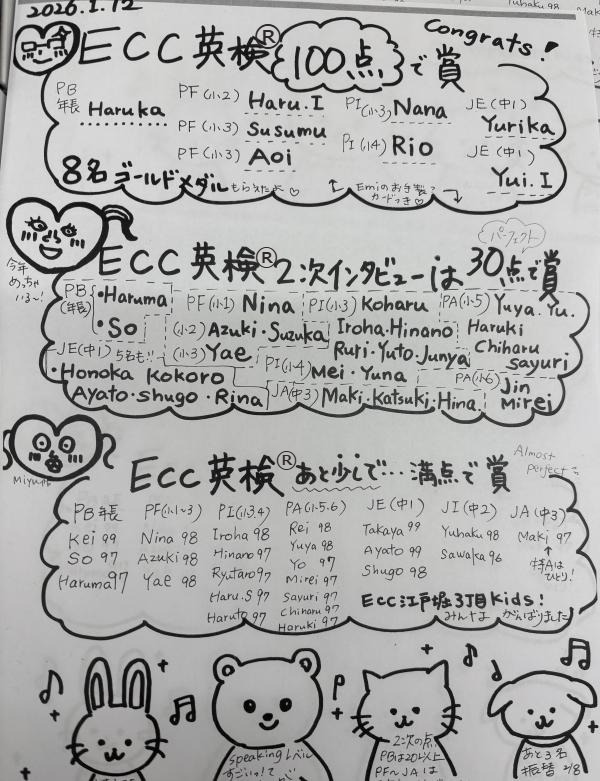 2026.1.12
Congrats!
ECC英検® 100点で賞
PB年長 Haruka
PF(小2) Haru.I
PF(小3) Susumu
PF(小3) Aoi
PI(小3) Nana
PI(小4) Rio
JE(中1) Yurika
JE(中1) Yui.I
8名ゴールドメダルもらえたよ♡
Emiのお手製カードつき♡
今年めっちゃいる~!
パーフェクト
ECC英検® 2次インタビューは30点で賞
PB(年長) ・Haruma ・So
PF(小1) Nina
(小2) Azuki・Suzuka
(小3) Yae
PI(小3) Koharu
Iroha・Hinano
Ruri・Yuto・Junya
PI(小4) Mei・Yuna
PA(小5) Yuya.Yu.
Haruki
Chiharu
Sayuri
PA(小6) Jin
Mirei
JE(中1) 5名も!!
・Honoka Kokoro
Ayato・Shugo・Rina
JA(中3) Maki・Katsuki・Hina
Miyu作
ECC英検® あと少しで…満点で賞
Almost perfect
PB年長
Kei 99
So 97
Haruma 97
PF(小1~3)
Nina 98
Azuki 98
Yae 98
PI(小3.4)
Iroha 98
Hinano 97
Ryutaro 97
Haru.S 97
Haruto 97
PA(小5.6)
Rei 98
Yuya 98
Yo 97
Mirei 97
Sayuri 97
Chiharu 97
Haruki 97
JE(中1)
Takaya 99
Ayato 99
Shugo 98
JI(中2)
Yuhaku 98
Sawaka 96
JA(中3)
Maki 97
↑
特Aはひとり!
ECC江戸堀3丁目Kids!
みんなよくがんばりました
Speakingレベル
すごいっ!て
2次の点
PBは20以上
PF~JAは
あと3名
振替 2/8